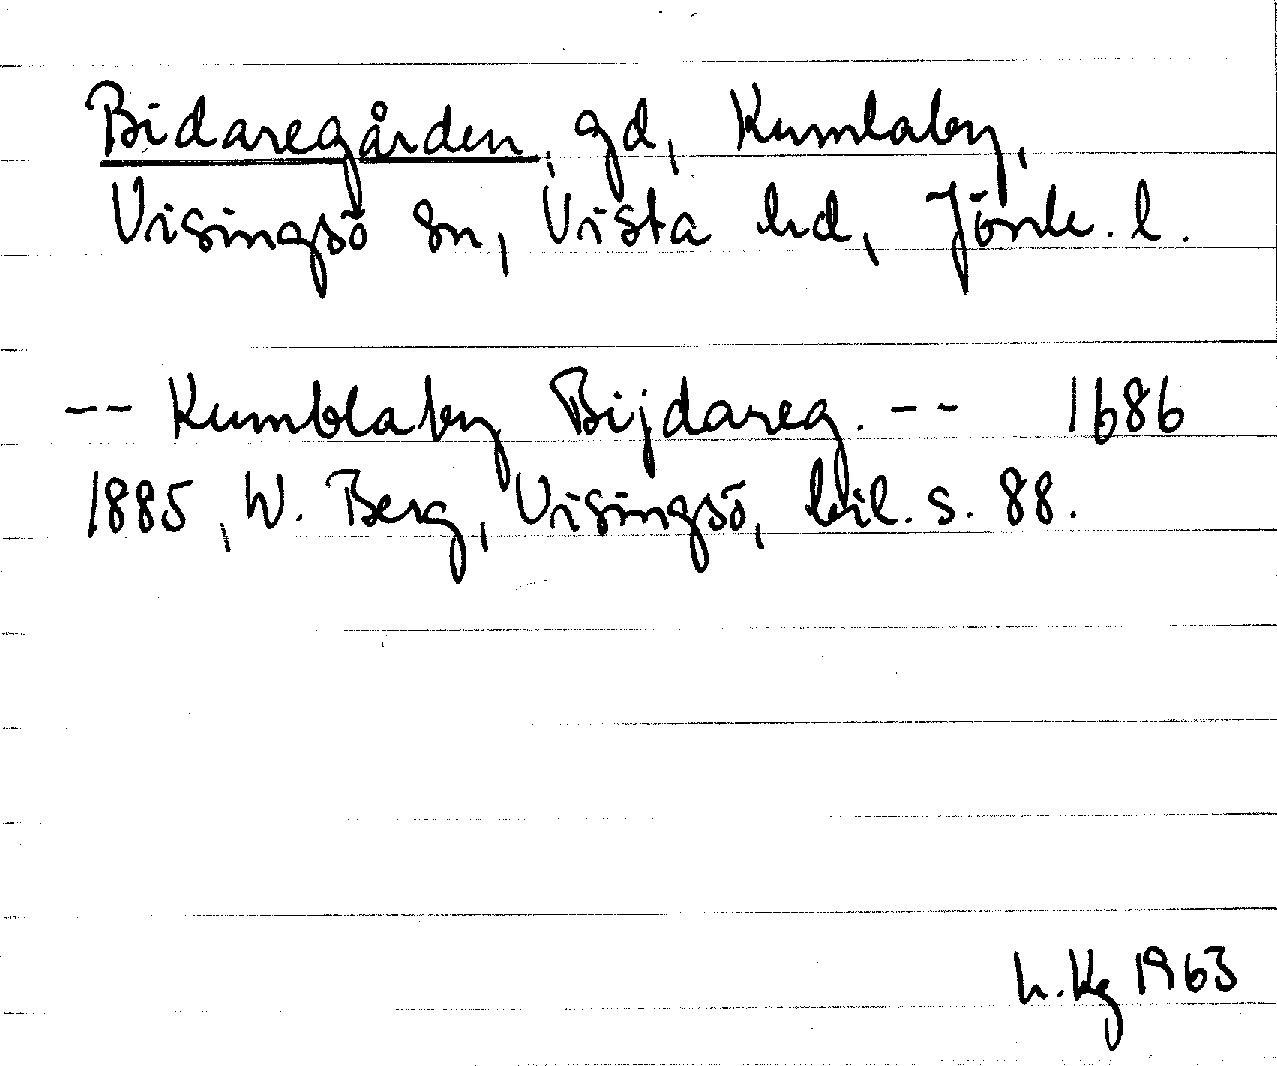 Bidaregården, gd, Kumlaby,
Visingsö sn, Vista hd, Jönk. l.
-- Kumblaby Bijdareg. -- 1686
1885, W. Berg, Visingsö, bil. s. 88.
h. Kg 1963